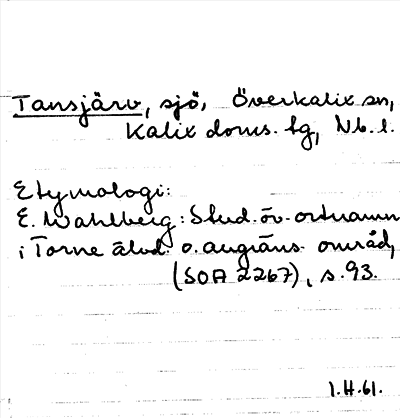 Tansjärv, sjö, Överkalix sn,
Kalix doms. lg, Nb. l.
Etymologi:
E. Wahlberg: Stud. öv. ortnamn
i Torne älvd. o. angräns. områd,
(SOA 2267), s. 93.
1.H.61.